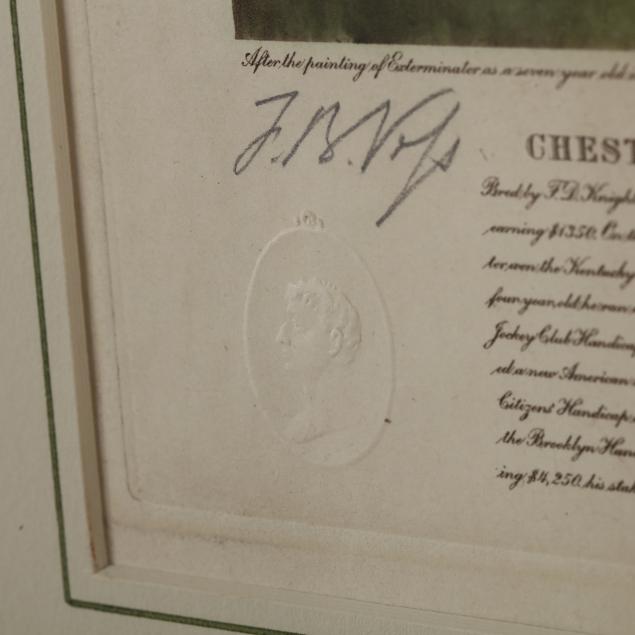 After the painting of Exterminator as a seven year old
F. B. Voss
CHEST
Bred by F. D. Knight
earning $1350. On
ter won the Kentucky
four year old he ran
Jockey Club Handicap
ed a new American
Citizens Handicap
the Brooklyn Han
ing $4,250. his sta